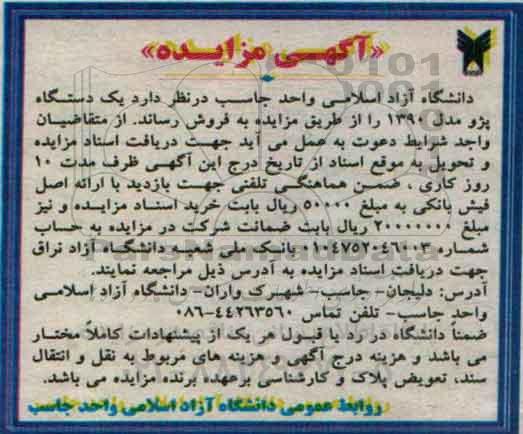 «آگهی مزایده»
دانشگاه آزاد اسلامی واحد جاسب درنظر دارد یک دستگاه
پژو مدل ۱۳۹۰ را از طریق مزایده به فروش رساند. از متقاضیان
واجد شرایط دعوت به عمل می آید جهت دریافت اسناد مزایده
و تحویل به موقع اسناد از تاریخ درج این آگهی ظرف مدت ۱۰
روز کاری ، ضمن هماهنگی تلفنی جهت بازدید با ارائه اصل
فیش بانکی به مبلغ ۵۰۰۰۰ ریال بابت خرید اسناد مزایده و نیز
مبلغ ۲۰۰۰۰۰۰۰ ریال بابت ضمانت شرکت در مزایده به حساب
شماره ۰۱۰۴۷۵۲۰۴۶۰۰۳ بانک ملی شعبه دانشگاه آزاد نراق
جهت دریافت اسناد مزایده به آدرس ذیل مراجعه نمایند.
آدرس: دلیجان- جاسب- شهرک واران- دانشگاه آزاد اسلامی
واحد جاسب- تلفن تماس ۴۴۲۶۳۵۶۰-۰۸۶
ضمناً دانشگاه در رد یا قبول هر یک از پیشنهادات کاملاً مختار
می باشد و هزینه درج آگهی و هزینه های مربوط به نقل و انتقال
سند، تعویض پلاک و کارشناسی برعهده برنده مزایده می باشد.
روابط عمومی دانشگاه آزاد اسلامی واحد جاسب